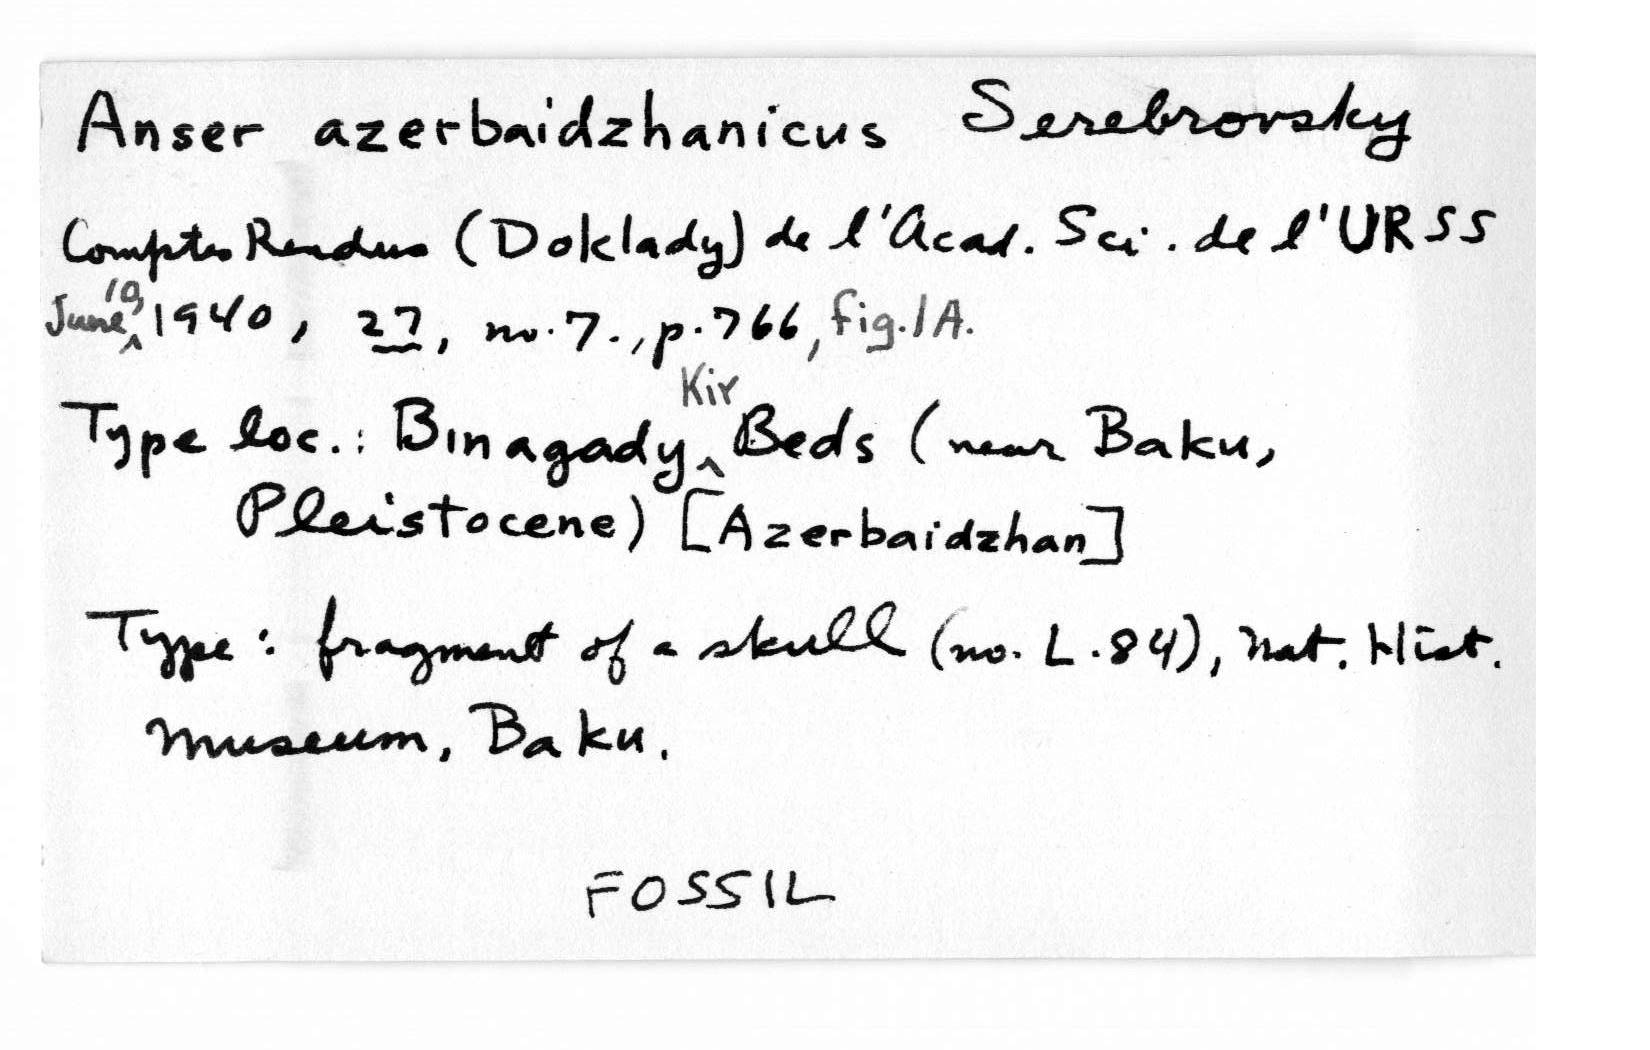 Anser azerbaidzhanicus Serebrovsky
Comptes Rendus (Doklady) de l'Acad. Sci. de l'URSS
June 10, 1940, 27, no. 7., p. 766, fig. 1A.
Type loc.: Binagady Kir Beds (near Baku,
Pleistocene) [Azerbaidzhan]
Type: fragment of a skull (no. L.84), Nat. Hist.
Museum, Baku.
FOSSIL